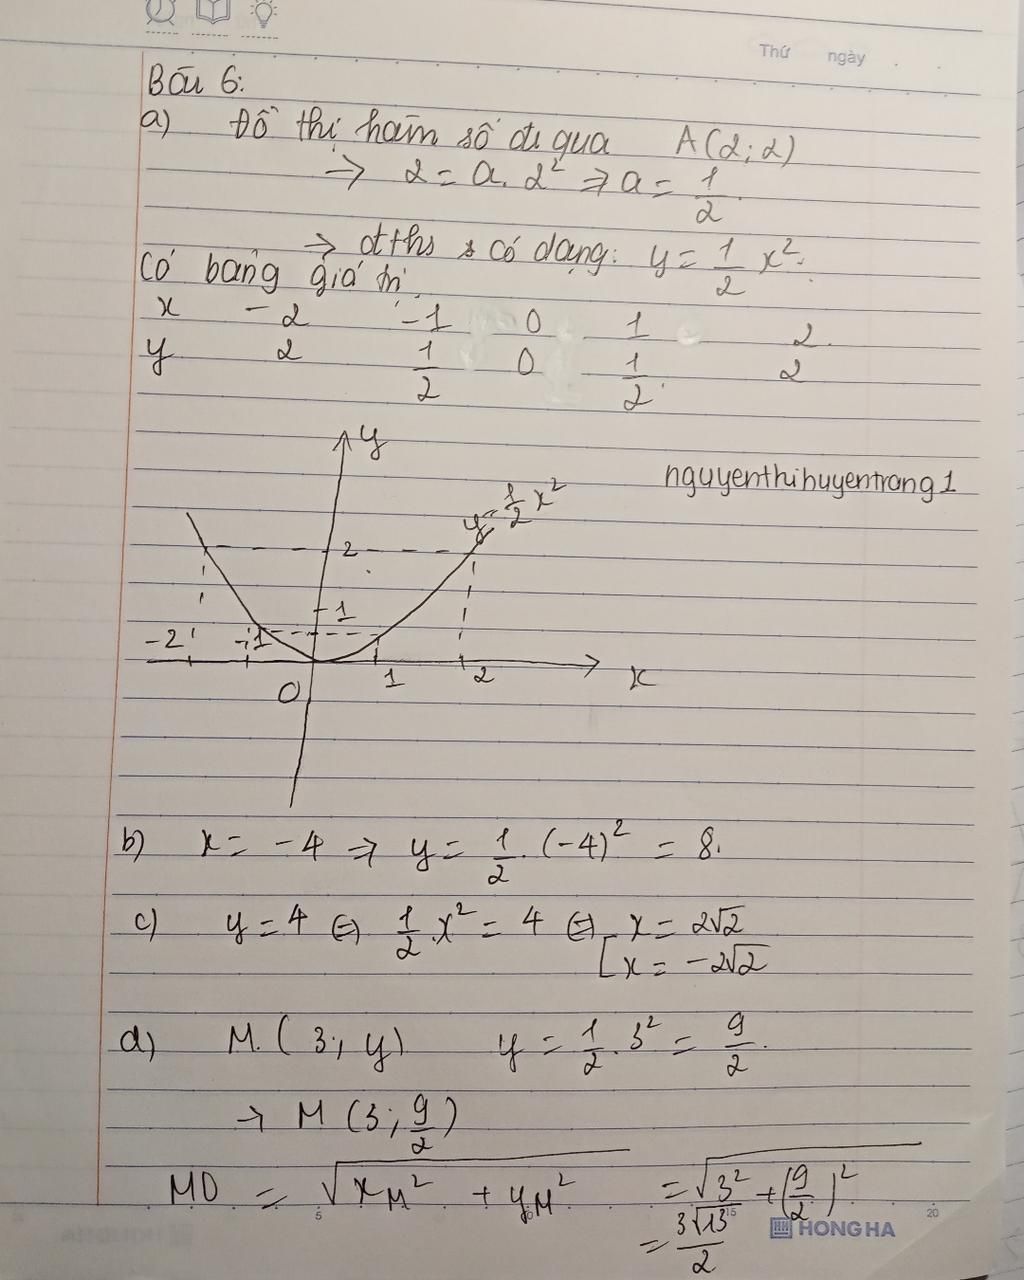 Thứ ngày
Bài 6:
a) Đồ thị hàm số đi qua A(2;2)
⇒ 2 = a. 2² ⇒ a = 1/2
⇒ đths có dạng: y = 1/2 x².
Có bảng giá trị
x -2 -1 0 1 2
y 2 1/2 0 1/2 2
y
nguyenthihuyentrang1
y = 1/2 x²
2
1
-2 -1
O 1 2 x
b) x = -4 ⇒ y = 1/2 . (-4)² = 8.
c) y = 4 ⇔ 1/2 . x² = 4 ⇔ [ x = 2√2
x = -2√2
d) M. (3; y) y = 1/2 . 3² = 9/2.
→ M (3; 9/2)
MO = √(x_M² + y_M²) = √(3² + (9/2)²)
= 3√13/2
5 10 15 20
HONG HA